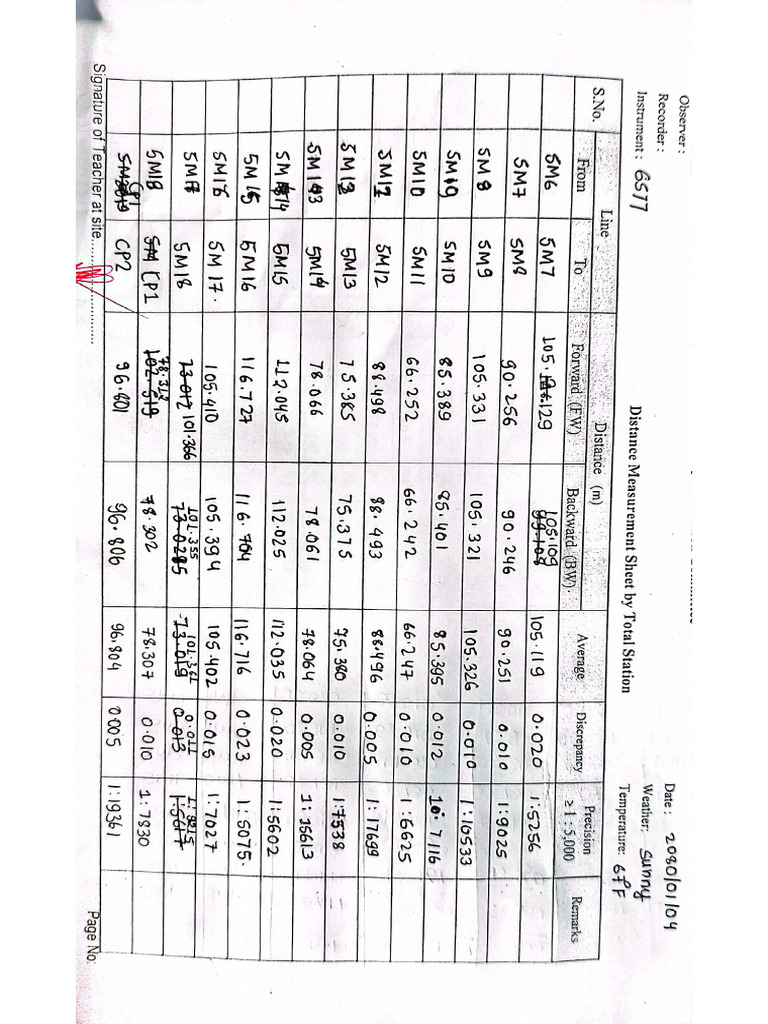 Observer :
Recorder :
Instrument : 6577
Distance Measurement Sheet by Total Station
Date : 2080/01/04
Weather: Sunny
Temperature:
S.No. Line Distance (m) Average Discrepancy Precision ≥ 1 : 5,000 Remarks
From To Forward (FW) Backward (BW)
5M6 5M7 105.129 105.109 105.119 0.020 1:5256
5M7 5M8 90.256 90.246 90.251 0.010 1:9025
5M8 5M9 105.331 105.321 105.326 0.010 1:10533
5M9 5M10 85.389 85.401 85.395 0.012 1: 7116
5M10 5M11 66.252 66.242 66.247 0.010 1:6625
5M12 5M12 88.498 88.493 88.496 0.005 1: 17699
5M12 5M13 75.385 75.375 75.380 0.010 1:7538
5M13 5M14 78.066 78.061 78.064 0.005 1: 15613
5M14 5M15 112.045 112.025 112.035 0.020 1:5602
5M15 5M16 116.727 116.704 116.716 0.023 1:5075.
5M16 5M17. 105.410 105.394 105.402 0.015 1:7027
5M17 5M18 101.366 101.355 101.361 0.011 1:9215
5M18 CP1 78.312 78.302 78.307 0.010 1:7830
CP1 CP2 96.801 96.806 96.804 0.005 1:19361
Signature of Teacher at site
Page No: